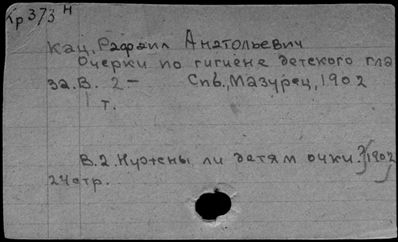 Кр 373 Н
Кац, Рафаил Анатольевич
Очерки по гигиене детского гла
за. В. 2 – Спб., Мазурец, 1902
1 т.
В. 2. Нужены ли детям очки. 1902
24 стр.